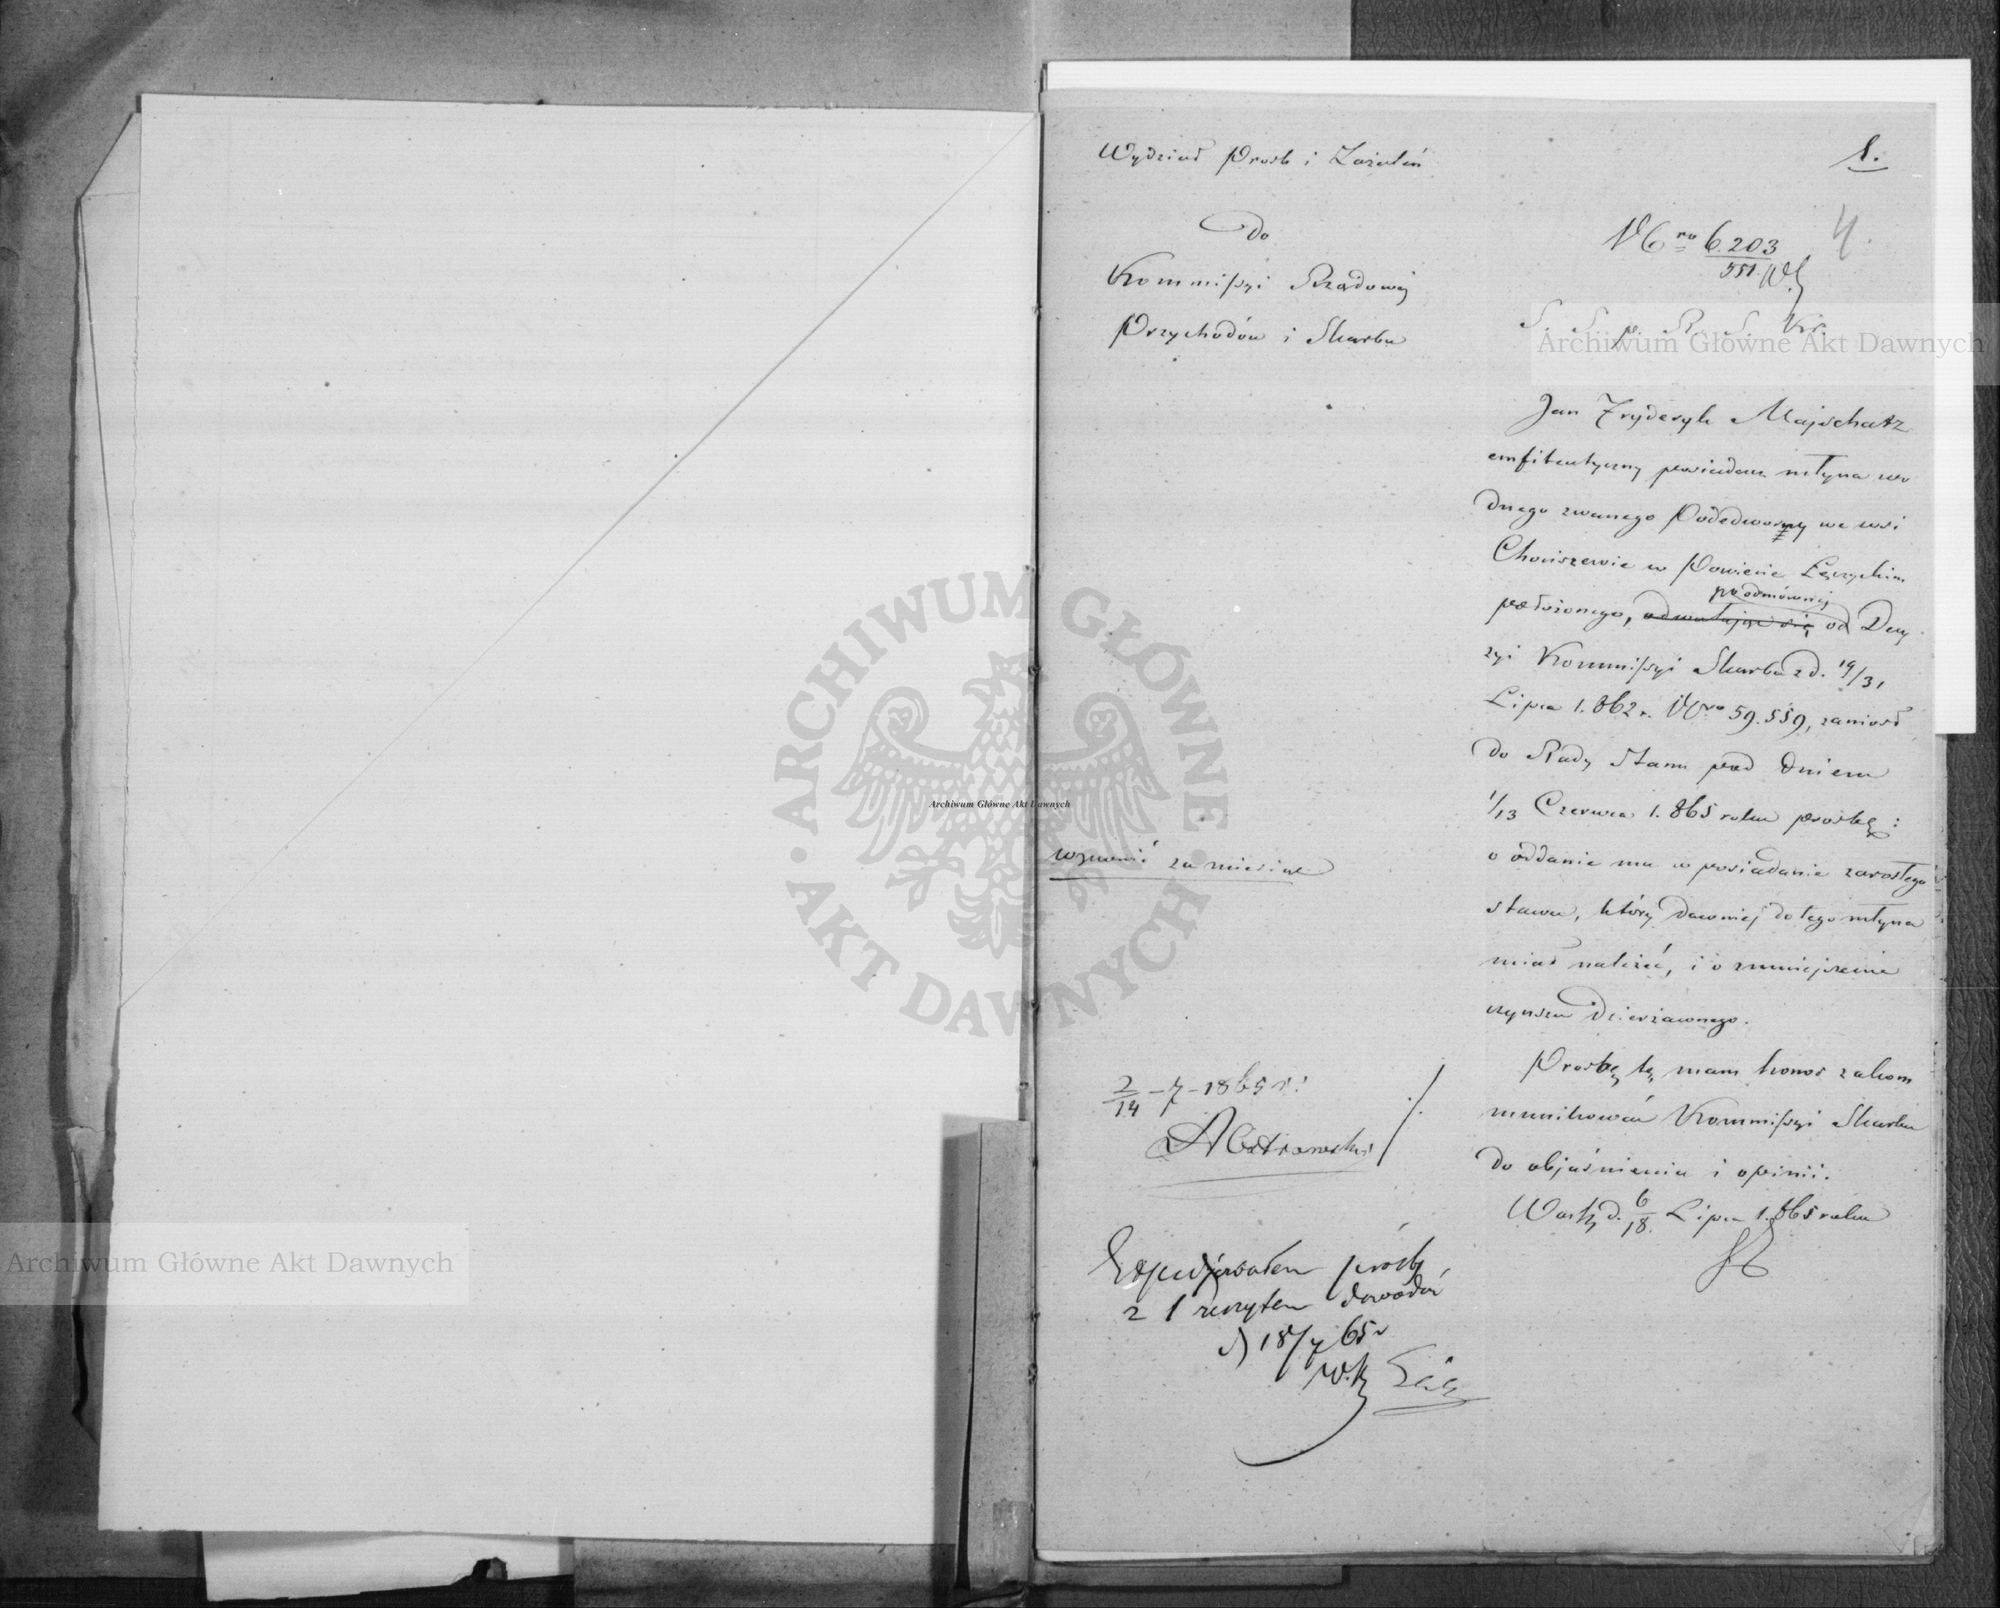 Wydział Prośb i Zażaleń
1.
Do
Kommissyi Rządowej
Przychodów i Skarbu
Nro 6.203
551
4.
S. S. p. R. S. Kr.
Jan Fryderyk Majschatz
emfiteutyczny posiadacz młyna wo
dnego zwanego Pododworny we wsi
Chociszewie w Powiecie Łęczyckim
po odmównej
położonego, odwołując się, od Decy
zyi Kommissyi Skarbu z d. 19/31
Lipca 1.862 r. Nro 59.559, zaniosł
do Rady Stanu pod dniem
1/13 Czerwca 1.865 roku prośbę:
o oddanie mu w posiadanie zarosłego
stawu, który dawniej do tego młyna
miał należeć, i o zmniejszenie
czynszu dzierżawnego.
Prośbę tę mam honor zakom
munikować Kommissyi Skarbu
do objaśnienia i opinii.
Warsz d. 6/18. Lipca 1.865 roku
wznowić za miesiąc
2/14 - 7 - 1865 r.
Expedjowałem prośbę
z 1 zeszytem dowodów
d 18/7 65 r
Archiwum Główne Akt Dawnych
Archiwum Główne Akt Dawnych
Archiwum Główne Akt Dawnych
ARCHIWUM GŁÓWNE · AKT DAWNYCH ·